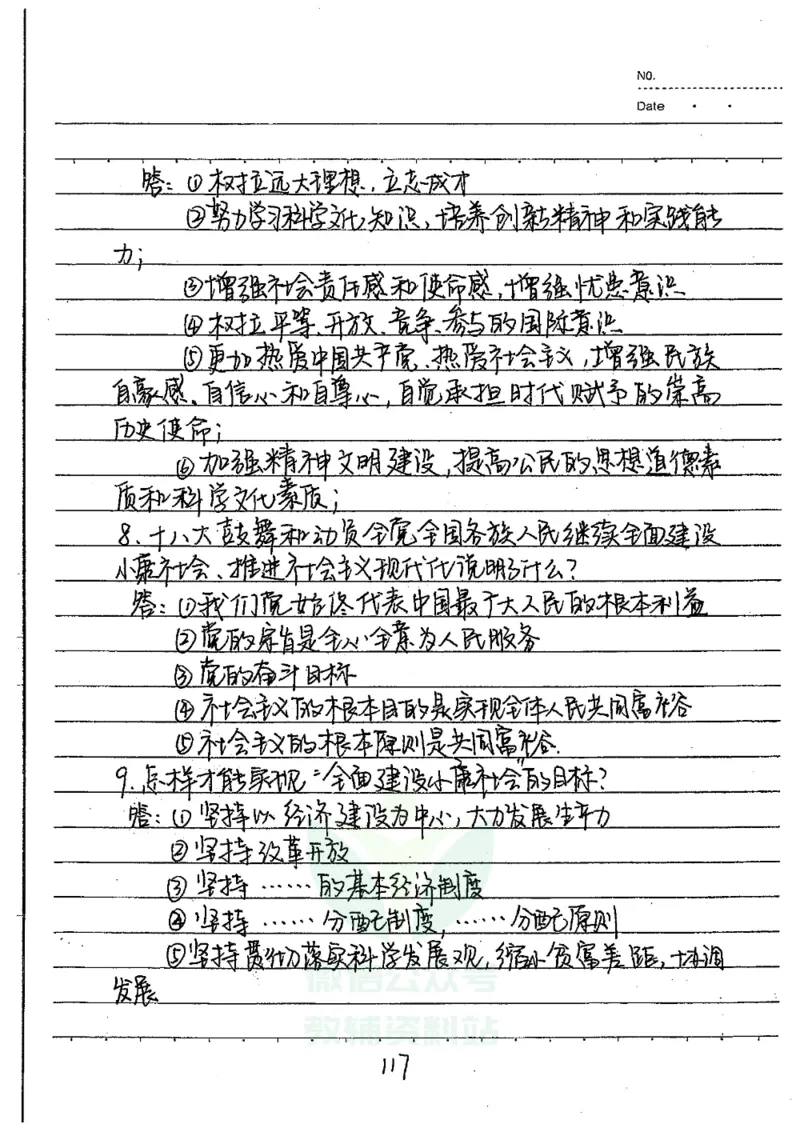 NO.
Date
答：①树立远大理想，立志成才
②努力学习科学文化知识，培养创新精神和实践能
力；
③增强社会责任感和使命感，增强忧患意识
④树立平等、开放、竞争、参与的国际意识
⑤更加热爱中国共产党、热爱社会主义，增强民族
自豪感、自信心和自尊心，自觉承担时代赋予的崇高
历史使命；
⑥加强精神文明建设，提高公民的思想道德素
质和科学文化素质；
8、十八大鼓舞和动员全党全国各族人民继续全面建设
小康社会、推进社会主义现代化说明了什么？
答：①我们党始终代表中国最广大人民的根本利益
②党的宗旨是全心全意为人民服务
③党的奋斗目标
④社会主义的根本目的是实现全体人民共同富裕
⑤社会主义的根本原则是共同富裕.
9、怎样才能实现"全面建设小康社会"的目标？
答：①坚持以经济建设为中心，大力发展生产力
②坚持改革开放
③坚持……的基本经济制度
④坚持……分配制度，……分配原则
⑤坚持贯彻落实科学发展观，缩小贫富差距，协调
发展
微信公众号
教辅资料站
117